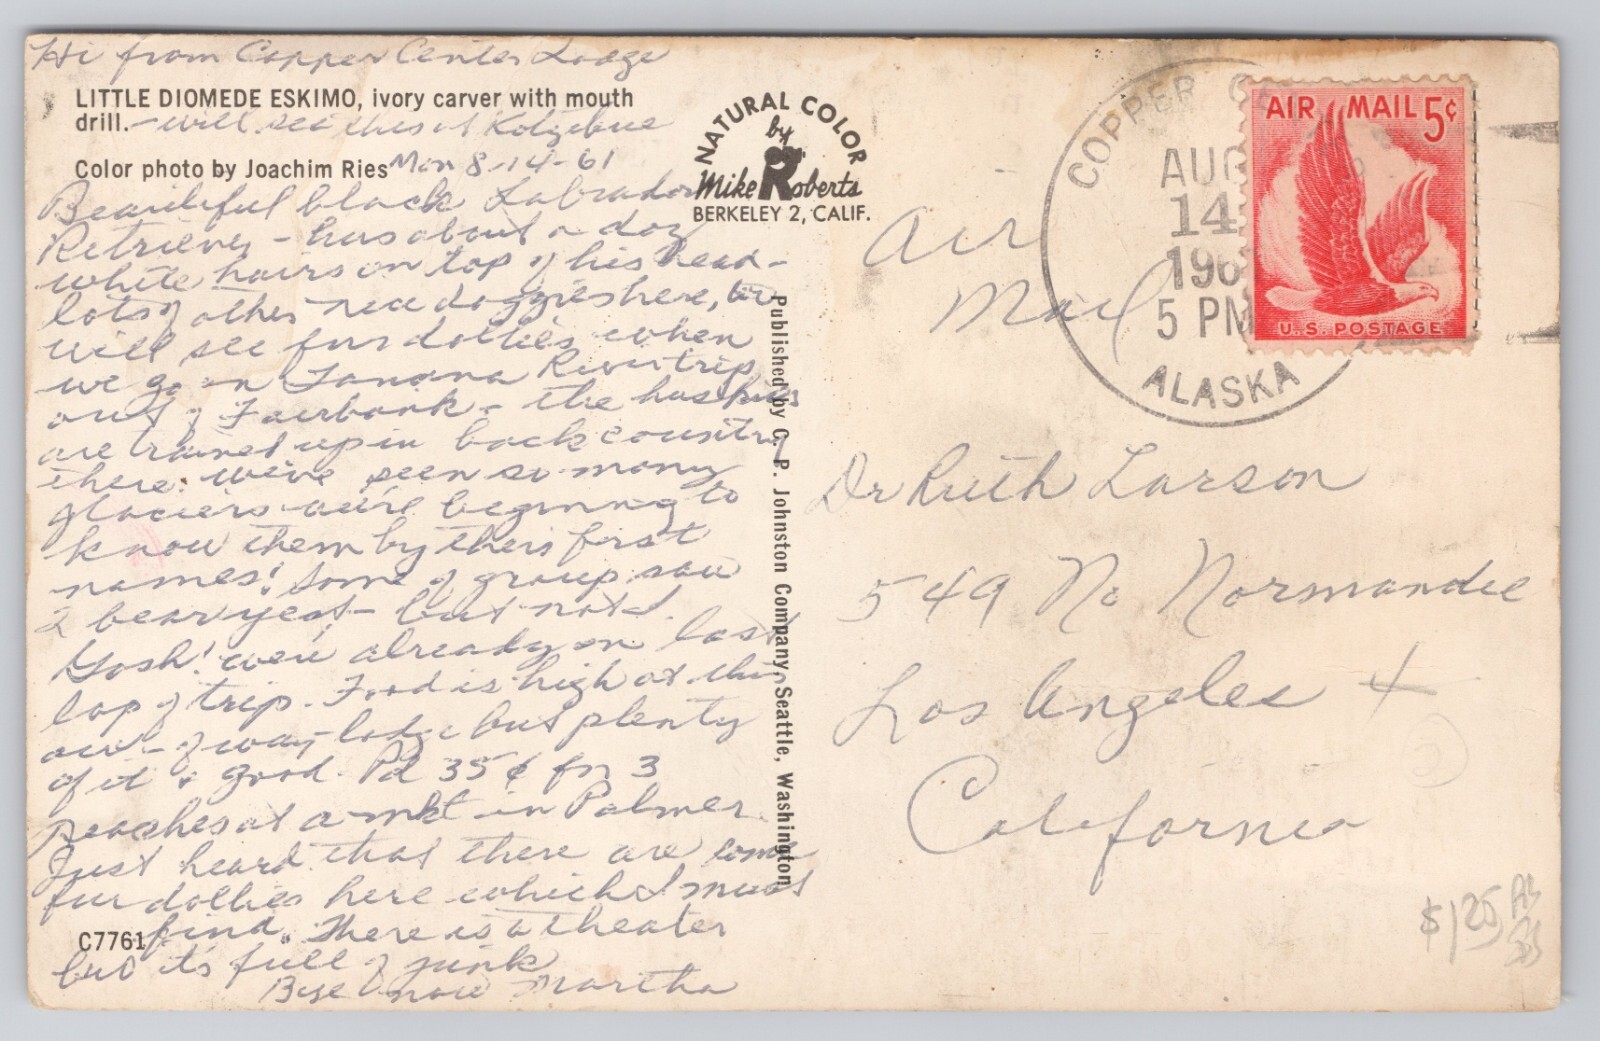 Hi from Copper Center Lodge
LITTLE DIOMEDE ESKIMO, ivory carver with mouth
drill. - will see this at Kotzebue
Color photo by Joachim Ries Mon 8-14-61
Beautiful black Labrador
Retriever - has about a doz
white hairs on top of his head -
lots of other nice doggies here, but
will see fur dollies when
we go on Tanana River trip
out of Fairbank - the huskies
are trained up in back country
there. we've seen so many
glaciers we're beginning to
know them by their first
names! Some of group saw
2 bear yest - but not I.
Gosh! we're already on last
lap of trip. Food is high at this
out-of-way lodge but plenty
of it & good. Pd 35¢ for 3
peaches at a mkt in Palmer
Just heard that there are some
fur dollies here which I must
C7761 find. There is a theater
but it's full of junk
Bye now Martha
NATURAL COLOR
by
Mike Roberts
BERKELEY 2, CALIF.
Published by C. P. Johnston Company, Seattle, Washington
COPPER
AUG
14
196
5 PM
ALASKA
AIR MAIL 5¢
U.S. POSTAGE
Air
Mail
Dr Ruth Larson
549 No Normandie
Los Angeles 4
California
$1.25